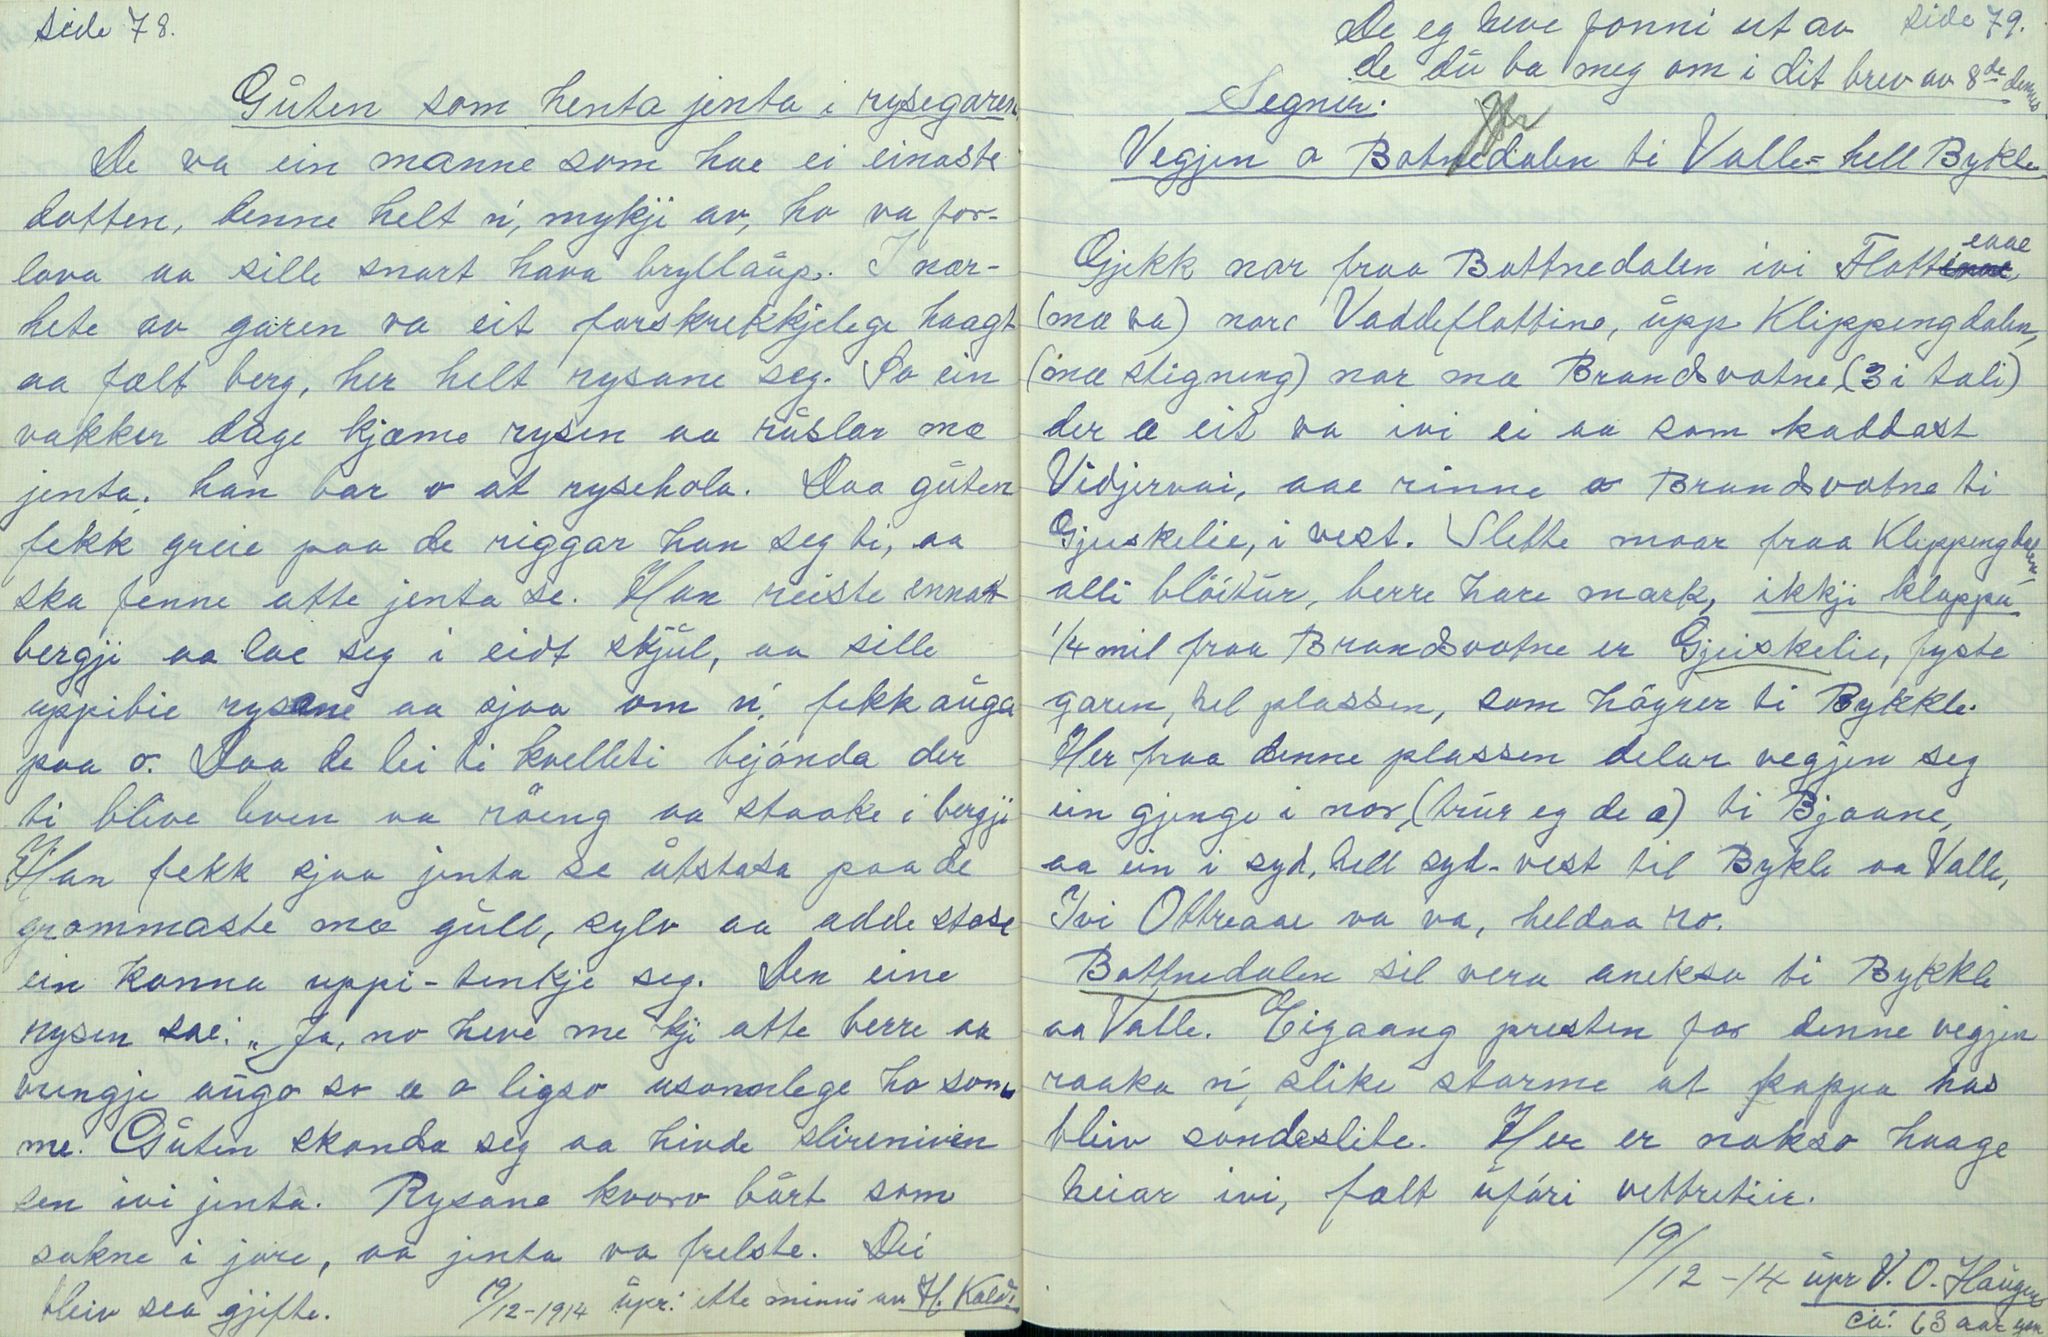 side 78.
Gúten som henta jenta i rysegaren
De va ein manne som hae ei einaste
dotten, denne helt 'n, mykji av, ho va for-
lova aa sille snart hava bryllaup. I nær-
hete av garen va eit forskrekkjelege haagt
aa fælt berg, her helt rysane seg. So ein
vakker dage kjæme rysen aa rúslar mæ
jenta. han bar o at rysehola. Daa gúten
fekk greie paa de riggar han seg ti, aa
ska fenne atte jenta se. Han reiste
bergji aa lae seg i eidt skjúl, aa sille
uppibie rysane aa sjaa om 'n, fekk auga
paa o. Daa de lei ti kvelleti bejónda der
ti blive even va röeng aa staake i bergji
Han fekk sjaa jenta se útstasa paa de
grommaste mæ gúll, sylv aa adde stase
ein konna uppi-tenkje seg. Den eine
rysen sae: "Ja, no heve me kji atte berre aa
vrengje augo so æ o ligso usonnlege ho som
me. Gúten skonda seg aa hivde slireniven
sen ivi jenta. Rysane kvorv bårt som
sokne i jore, aa jenta va frelste. Dei
bleiv sea gjifte.
19/12-1914 úpr: ette minni av H. Kald:
De eg heve fonni ut av side 79.
de dú ba meg om i dit brev av 8de dennes
Segner.
Jfr
Vegjen o Botnedalen ti Valle= hell Bykle
Gjekk nor fraa Bottnedalen ivi Flott eaae
(mæ va) nor Vaddeflottine, úpp Klippengdalen,
(mæ stigneng) nor mæ Brandsvatne (3 i tali)
der æ eit va ivi ei aa som kaddast
Vidjervai, aae rinne o Brandsvatne ti
Gjeiskelie, i vest. Slette moar fraa Klippengdalen,
alli blöitúr, berre hare mark, ikkji kloppa
1/4 mil fraa Brandsvatne er Gjeiskelie, fyste
garen, hel plassen, som höyrer ti Bykkle.
Her fraa denne plassen delar vegjen seg
ein gjenge i nor, (trúr eg de æ) ti Bjaane,
aa ein i syd, hell syd-vest til Bykle aa Valle,
Ivi Ottreaae va va, heldaa ro.
Bottnedalen sil vera aneksa ti Bykkle
aa Valle. Eigaang presten for denne vegjen
raaka 'n, slike storme at kappa has
bleiv sondeslite. Her er nokso haage
heiar ivi, fælt úfóri vettretiie.
19/12-14 úpr V. O. Haúgen
ca: 63 aar gam